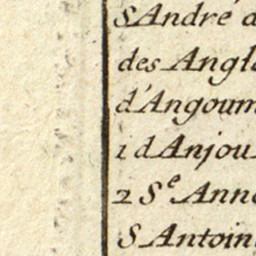 S André
des Angl
d'Angoum
1 d'Anjou
2 Se Ann
S Antoin